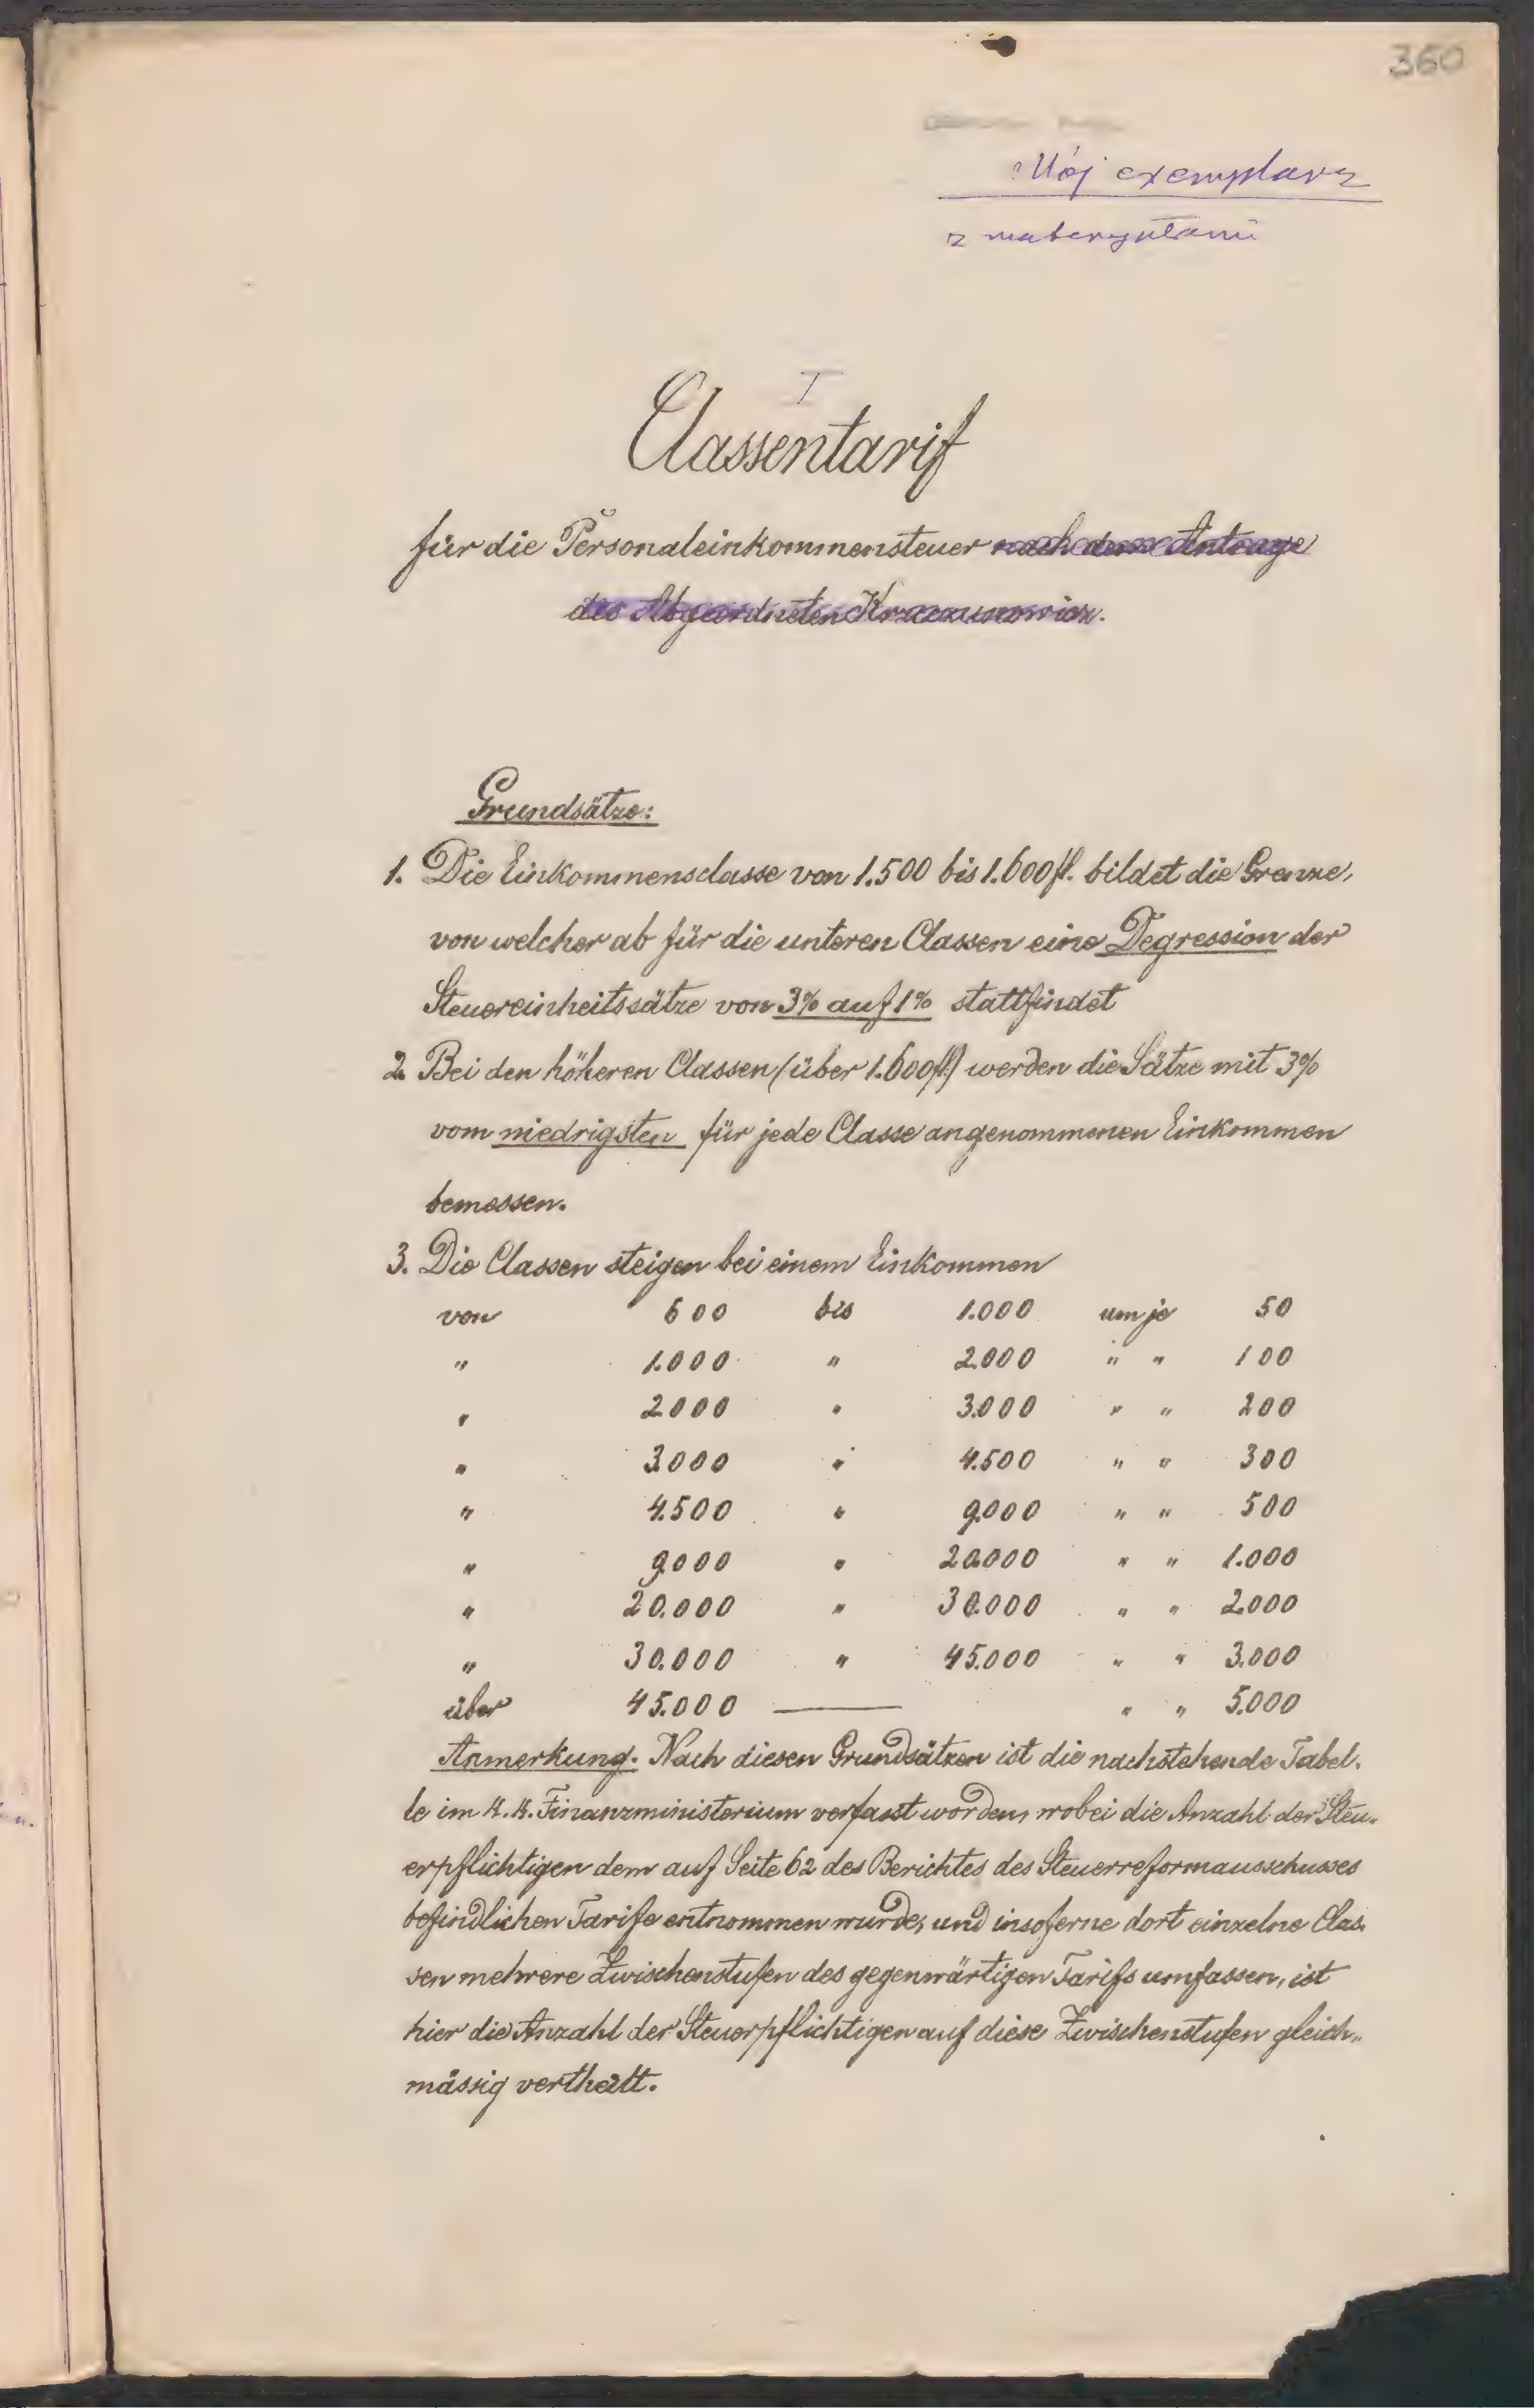 360
Mój exemplarz
z
I
Classentarif
für die Personaleinkommensteuer nach dem Antrage
des Abgeordneten Krzeczunowicz.
Grundsätze:
1. Die Einkommensclasse von 1.500 bis 1.600 fl. bildet die Grenze,
von welcher ab für die unteren Classen eine Degression der
Steuereinheitssätze von 3% auf 1% stattfindet
2. Bei den höheren Classen (über 1.600 fl.) werden die Sätze mit 3%
vom niedrigsten für jede Classe angenommenen Einkommen
bemessen.
3. Die Classen steigen bei einem Einkommen
von 600 bis 1.000 um je 50
" 1.000 " 2.000 " " 100
" 2000 " 3.000 " " 200
" 3.000 " 4.500 " " 300
" 4.500 " 9.000 " " 500
" 9.000 " 20.000 " " 1.000
" 20.000 " 30.000 " " 2.000
" 30.000 " 45.000 " " 3.000
über 45.000 — " " 5.000
Anmerkung. Nach diesen Grundsätzen ist die nachstehende Tabel-
le im k. k. Finanzministerium verfasst worden, wobei die Anzahl der Steu-
erpflichtigen dem auf Seite 62 des Berichtes des Steuerreformausschusses
befindlichen Tarife entnommen wurde, und insoferne dort einzelne Clas-
sen mehrere Zwischenstufen des gegenwärtigen Tarifs umfassen, ist
hier die Anzahl der Steuerpflichtigen auf diese Zwischenstufen gleich-
mässig vertheilt.